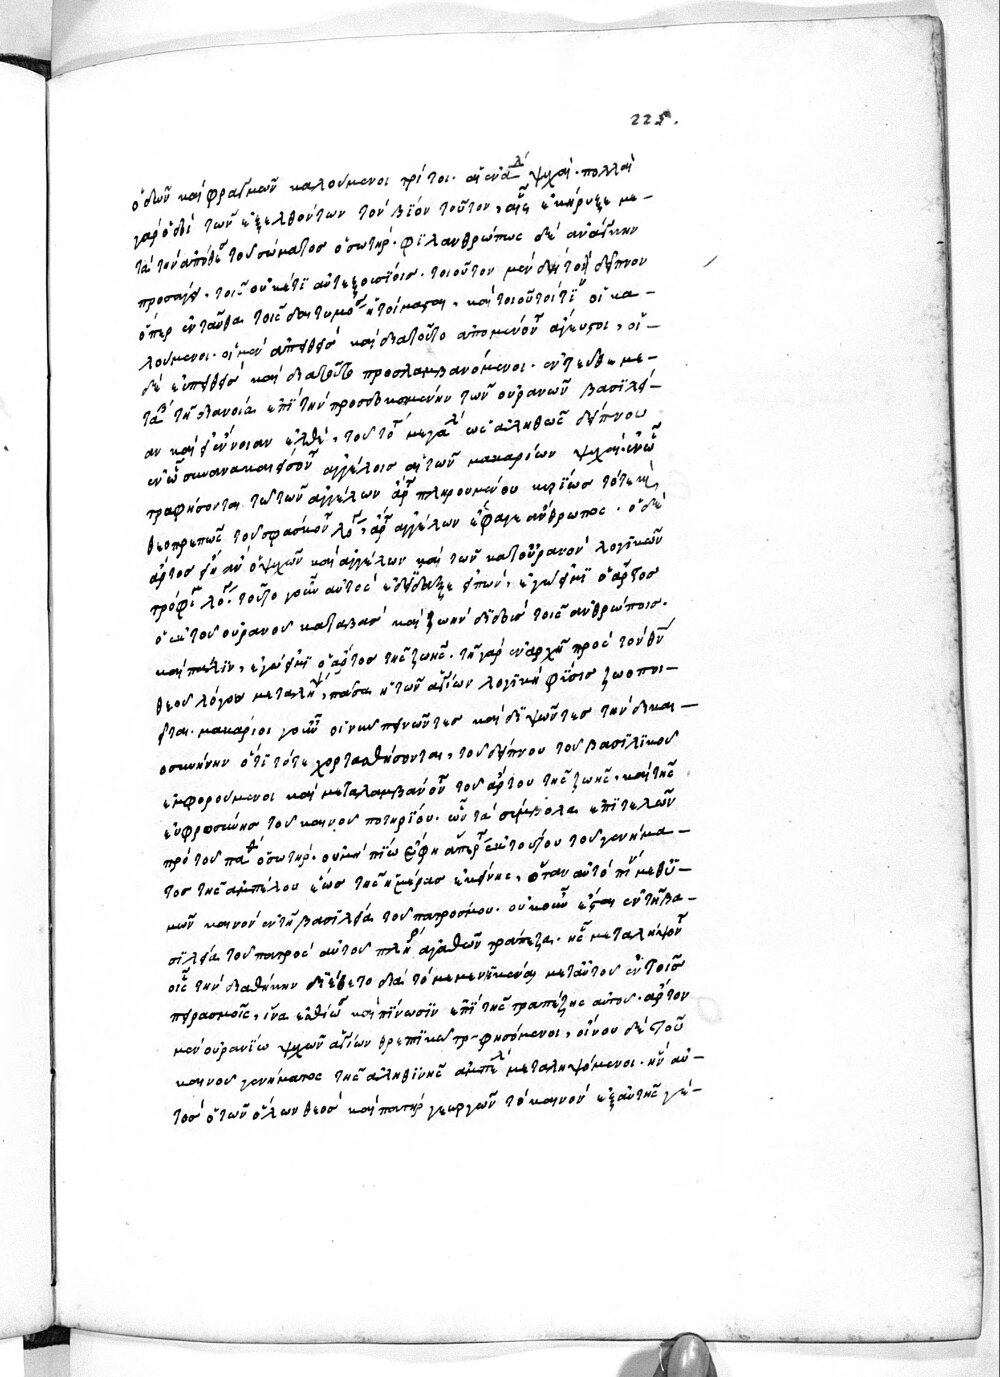 225.
ὁδῶν καὶ φραγμῶν καλούμενοι τρίτοι. αἱ ψυχαί. πολλαὶ
γὰρ δὲ τῶν ἐξελθόντων τὸν βίον τοῦτον, αἷς ἐκήρυξε με-
τὰ τὴν τοῦ σώματος ὁ σωτήρ. φιλανθρώπως δὲ ἀνάγκην
προσαγ, τοῖς οὐκέτι αὐτεξουσίοις. τοιοῦτον μὲν δὴ τὸ δεῖπνον
ὅπερ ἐνταῦθα τοῖς δαιτυμό ἡτοίμασται, καὶ τοιοῦτοί οἱ κα-
λούμενοι. οἱ μὲν ἀπειθεῖς καὶ διὰ τοῦτο ἀπομένον ἄγευστοι, οἱ
δὲ εὐπειθεῖς καὶ διὰ τοῦτο προσλαμβανόμενοι. ἐντεῦθεν με-
τὰ τῇ διανοίᾳ ἐπὶ τὴν προσδοκωμένην τῶν οὐρανῶν βασιλεί-
αν καὶ εἰς ἔννοιαν ἐλθὲ, τοῦ μεγάλ ὡς ἀληθῶς δείπνου
ἐν ᾧ συνανακλι ἀγγέλοις αἱ τῶν μακαρίων ψυχαὶ. ἐν ᾧ
τραφήσονται τῶ τῶν ἀγγέλων ἄρ πληρουμένου τότε
θεοπρεπῶς τοῦ φάσκον λό, ἄρ ἀγγέλων ἔφαγε ἄνθρωπος. ὁ δὲ
ἄρτος ὁ ψυχῶν καὶ ἀγγέλων καὶ τῶν κατ οὐρανὸν λογικῶν
τρόφι λό. τοῦτο γοῦν αὐτὸς ἐδίδαξε εἰπὼν, ἐγώ εἰμι ὁ ἄρτος
ὁ ἐκ τοῦ οὐρανοῦ καταβὰς καὶ ζωὴν διδοὺς τοῖς ἀνθρώποις.
καὶ πάλιν, ἐγώ εἰμι ὁ ἄρτος τῆς ζωῆς. τῇ γὰρ ἐν ἀρχῇ πρὸς τὸν θν
θεοῦ λόγου μεταλήψ, πᾶσα ἡ τῶν ἁγίων λογικὴ φύσις ζωοποι-
εῖται. μακάριοι γοῦν οἱ νῦν πεινῶντες καὶ διψῶντες τὴν δικαι-
οσύνην ὅτι τότε χορτασθήσονται, τοῦ δείπνου τοῦ βασιλικοῦ
ἐμφορούμενοι καὶ μεταλαμβάνον τοῦ ἄρτου τῆς ζωῆς, καὶ τῆς
εὐφροσύνης τοῦ καινοῦ ποτηρίου. ὧν τὰ σύμβολα ἐπιτελῶν
πρὸ τοῦ πάθ ὁ σωτήρ. οὐ μὴ πίω ἔφη ἀπάρτ ἐκ τούτου τοῦ γεννήμα-
τος τῆς ἀμπέλου ἕως τῆς ἡμέρας ἐκείνης, ὅταν αὐτὸ πίν μεθ ὑ-
μῶν καινὸν ἐν τῇ βασιλείᾳ τοῦ πατρός μου. οὐκοῦν ἔσται ἐν τῇ βα-
σιλείᾳ τοῦ πατρὸς αὐτοῦ πλήρ ἀγαθῶν τράπεζα. ἧς μεταλήψον
οἷς τὴν διαθήκην διέθετο διὰ τὸ μεμενηκέναι μετ αὐτοῦ ἐν τοῖς
πειρασμοῖς, ἵνα ἐσθίω καὶ πίνωσιν ἐπὶ τῆς τραπέζης αὐτοῦ. ἄρτον
μὲν οὐράνιον ψυχῶν ἁγίων θρεπτικὸν τραφησόμενοι, οἴνου δὲ τοῦ
καινοῦ γεννήματος τῆς ἀληθινῆς ἀμπέλ μεταληψόμενοι. ἣν αὐ-
τὸς ὁ τῶν ὅλων θεὸς καὶ πατὴρ γεωργῶν τὸ καινὸν ἐξ αὐτῆς γέ-